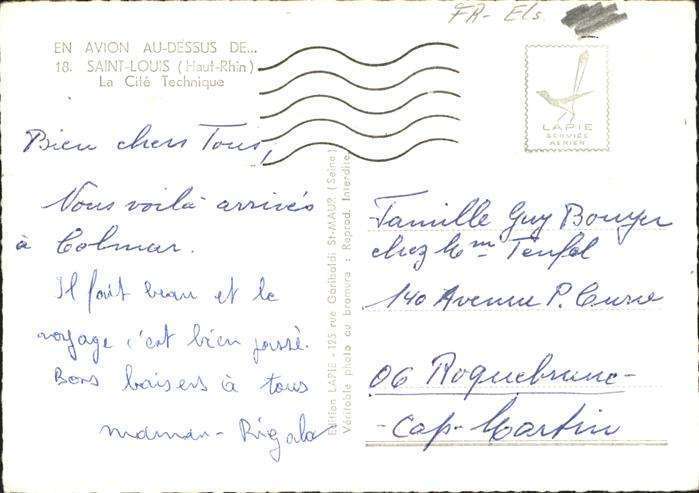 FR- Els
EN AVION AU-DESSUS DE...
18. SAINT-LOUIS (Haut-Rhin)
La Cité Technique
LAPIE
SERVICE
AERIEN
Bien chers Tous,
Nous voilà arrivés
à Colmar.
Il fait beau et le
voyage c'est bien passé.
Bons baisers à tous
maman-
Edition LAPIE - 125 rue Garibaldi St-MAUR (Seine)
Véritable photo au bromure : Reprod. Interdite
Famille Guy Bouyer
chez Mme Teufel
140 Avenue P. Curie
06 Roquebrune-
-Cap-Martin